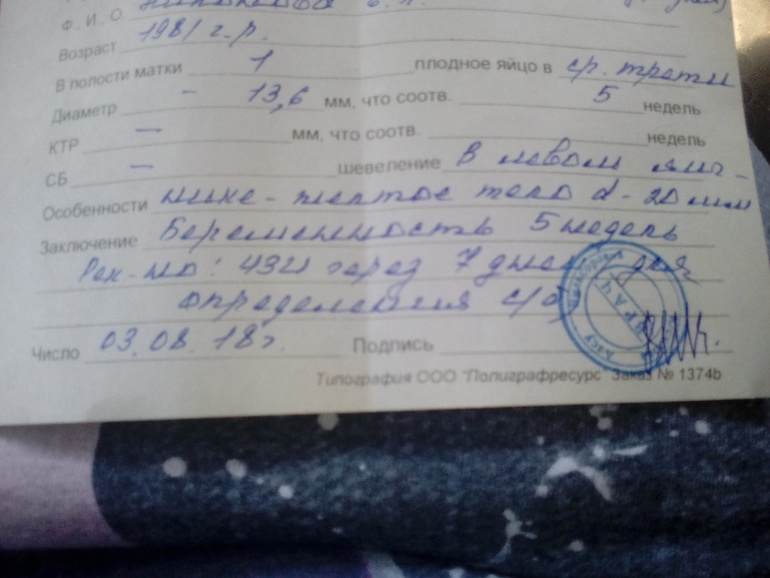 Ф., И., О
Возраст 1981 г.р.
В полости матки 1 плодное яйцо в ср. трети
Диаметр - 13,6 мм, что соотв. 5 недель
КТР — мм, что соотв. недель
СБ — шевеление В левом яич-
Особенности нике - желтое тело d - 20 мм
Заключение Беременность 5 недель
Рек-но: УЗИ через 7 дней для
определения с/б
Число 03.08.18г. Подпись
Типография ООО "Полиграфресурс" Заказ № 1374b
ВРАЧ